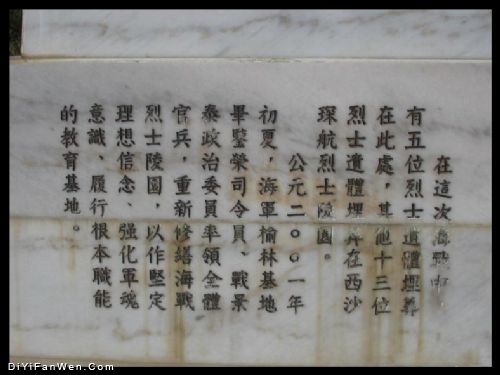 在這次海戰中
有五位烈士遺體埋葬
在此處，其他十三位
烈士遺體埋葬在西沙
琛航烈士陵園。
公元二○○一年
初夏，海軍榆林基地
畢鋻榮司令員、戰景
泰政治委員率領全體
官兵，重新修繕海戰
烈士陵園，以作堅定
理想信念、强化軍魂
意識、履行很本職能
的教育基地。
DiYiFanWen.Com